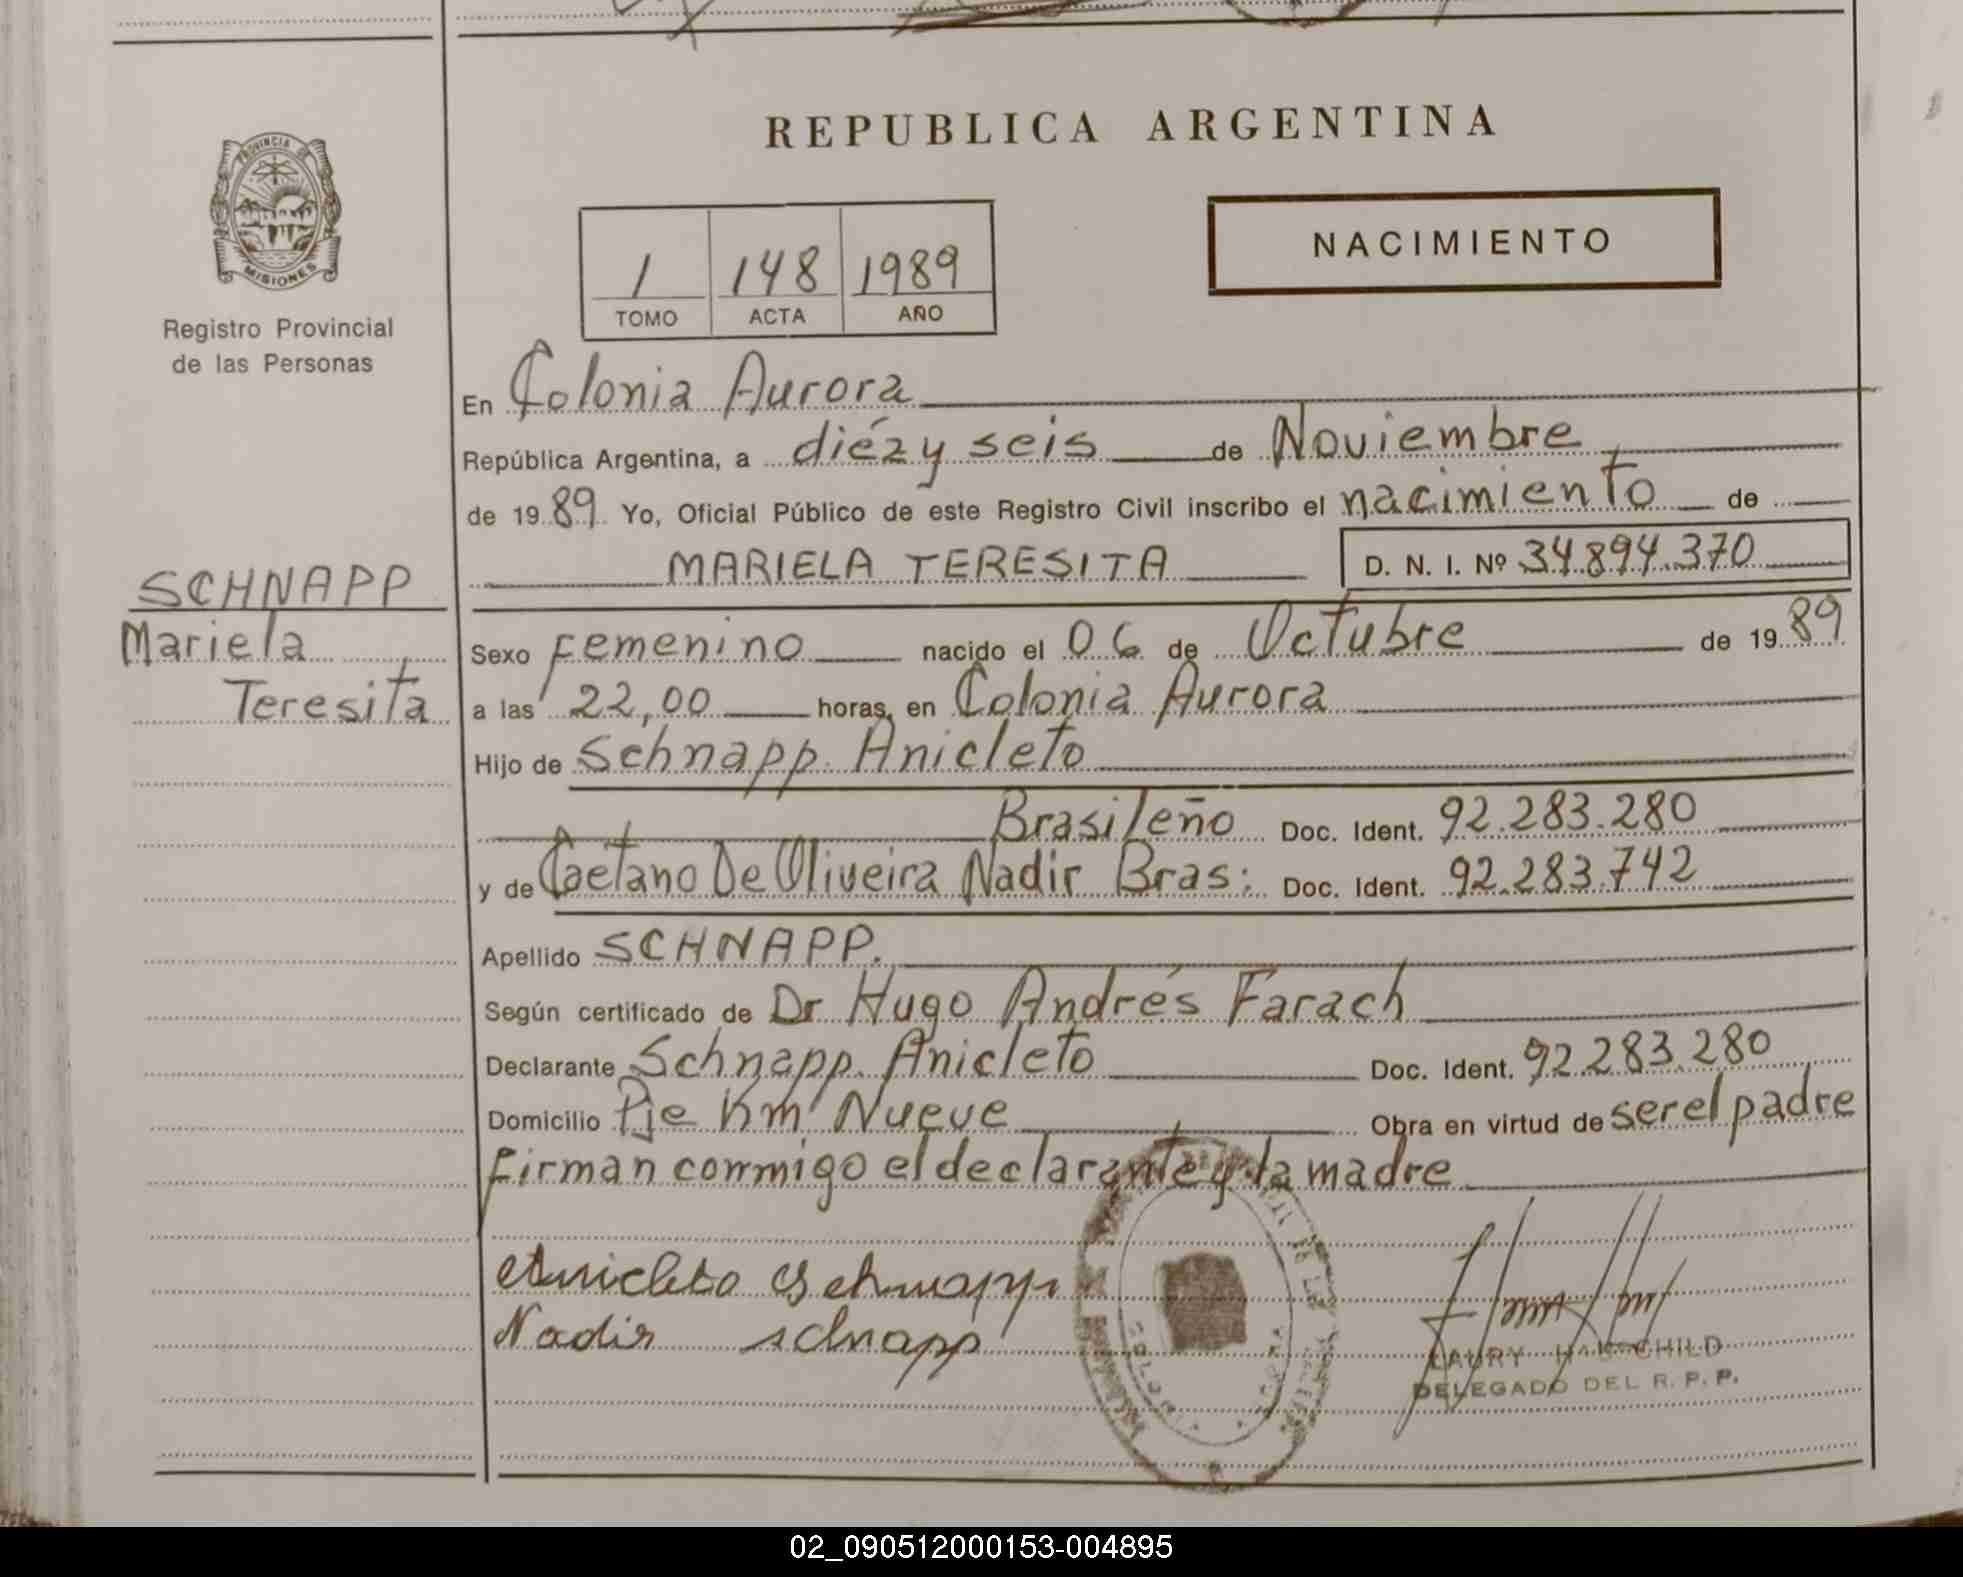 REPUBLICA ARGENTINA
PROVINCIA DE
MISIONES
Registro Provincial
de las Personas
1 148 1989
TOMO ACTA AÑO
NACIMIENTO
En Colonia Aurora
República Argentina, a diéz y seis de Noviembre
de 1989 Yo, Oficial Público de este Registro Civil inscribo el nacimiento de
MARIELA TERESITA D. N. I. Nº 34.894.370
SCHNAPP
Mariela
Teresita
Sexo Femenino nacido el 06 de Octubre de 1989
a las 22,00 horas, en Colonia Aurora
Hijo de Schnapp. Anicleto
Brasileño Doc. Ident. 92.283.280
y de Caetano De Oliveira Nadir Bras: Doc. Ident. 92.283.742
Apellido SCHNAPP.
Según certificado de Dr Hugo Andrés Farach
Declarante Schnapp. Anicleto Doc. Ident. 92.283.280
Domicilio Pje Km Nueve Obra en virtud de ser el padre
firman conmigo el declarante y la madre
Anicleto Schnapp
Nadir schnapp
LAURY
DELEGADO DEL R. P. P.
02_090512000153-004895